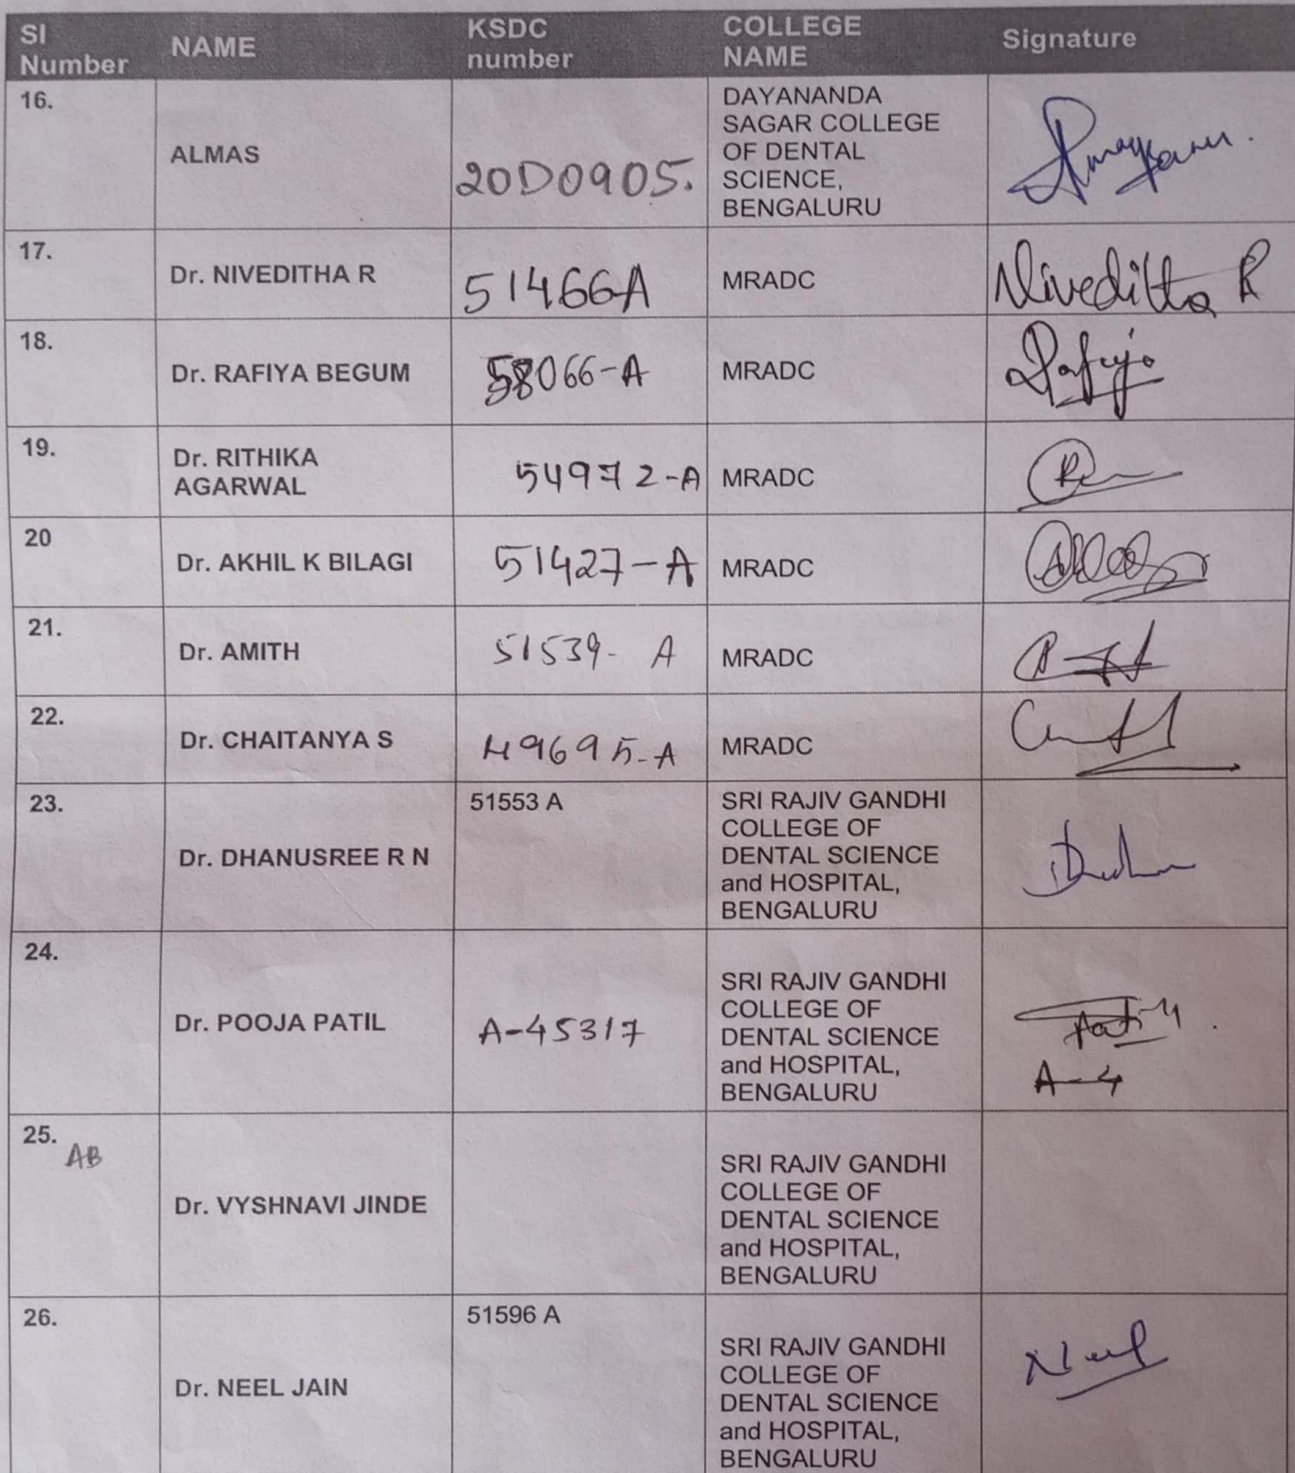 SI Number
NAME
KSDC number
COLLEGE NAME
Signature
16.
ALMAS
20D0905.
DAYANANDA
SAGAR COLLEGE
OF DENTAL
SCIENCE,
BENGALURU
17.
Dr. NIVEDITHA R
51466A
MRADC
Niveditha R
18.
Dr. RAFIYA BEGUM
58066-A
MRADC
Rafiya
19.
Dr. RITHIKA
AGARWAL
54972-A
MRADC
20
Dr. AKHIL K BILAGI
51427-A
MRADC
21.
Dr. AMITH
51539- A
MRADC
22.
Dr. CHAITANYA S
49695-A
MRADC
23.
Dr. DHANUSREE R N
51553 A
SRI RAJIV GANDHI
COLLEGE OF
DENTAL SCIENCE
and HOSPITAL,
BENGALURU
24.
Dr. POOJA PATIL
A-45317
SRI RAJIV GANDHI
COLLEGE OF
DENTAL SCIENCE
and HOSPITAL,
BENGALURU
A-4
25.
AB
Dr. VYSHNAVI JINDE
SRI RAJIV GANDHI
COLLEGE OF
DENTAL SCIENCE
and HOSPITAL,
BENGALURU
26.
Dr. NEEL JAIN
51596 A
SRI RAJIV GANDHI
COLLEGE OF
DENTAL SCIENCE
and HOSPITAL,
BENGALURU
Neel